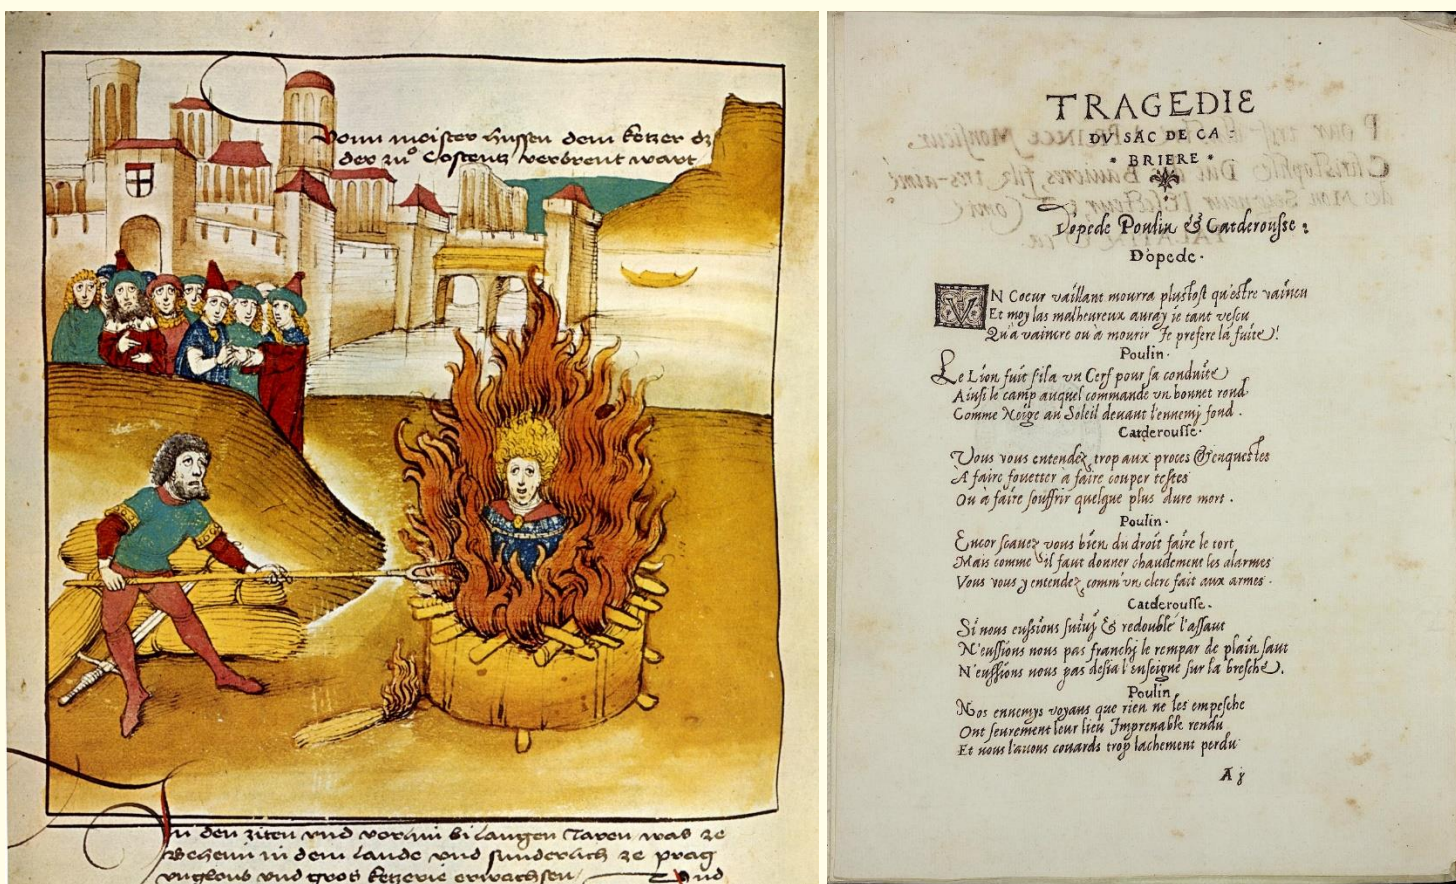 Vonn meister hussen dem ketzer dz
der zuͦ Costentz verbrent wart
In den ziten vnd vormals bi langen Jaren was ze
Behem in dem lande vnd sunderlich ze prag
vngloub vnd gros ketzerie erwachsen / Vnd
TRAGEDIE
DV SAC DE CA-
* BRIERE *
Dopede Poulin & Catderousse:
Dopede.
VN Coeur vaillant mourra plustost qu'estre vaincu
Et moy las malheureux auray ie tant vescu
Qu'à vaincre ou à mourir Ie prefere la fuite!
Poulin.
Le Lion fuit s'il a vn Cerf pour sa conduite
Ainsi le camp auquel commande vn bonnet rond
Comme Neige au Soleil deuant l'ennemj fond.
Catderousse.
Vous vous entendez trop aux proces & enquestes
A faire fouetter à faire couper testes
Ou à faire souffrir quelque plus dure mort.
Poulin.
Encor scauez vous bien du droit faire le tort
Mais comme il faut donner chaudement les alarmes
Vous vous y entendez comm'vn clerc fait aux armes.
Catderousse.
Si nous eussions suiuj & redoublé l'assaut
N'eussions nous pas franchj le rempar de plain saut
N'eussions nous pas desia l'enseigne sur la bresche.
Poulin
Nos ennemys voyans que rien ne les empesche
Ont seurement leur lieu Imprenable rendu
Et nous l'auons couards trop lachement perdu
A j